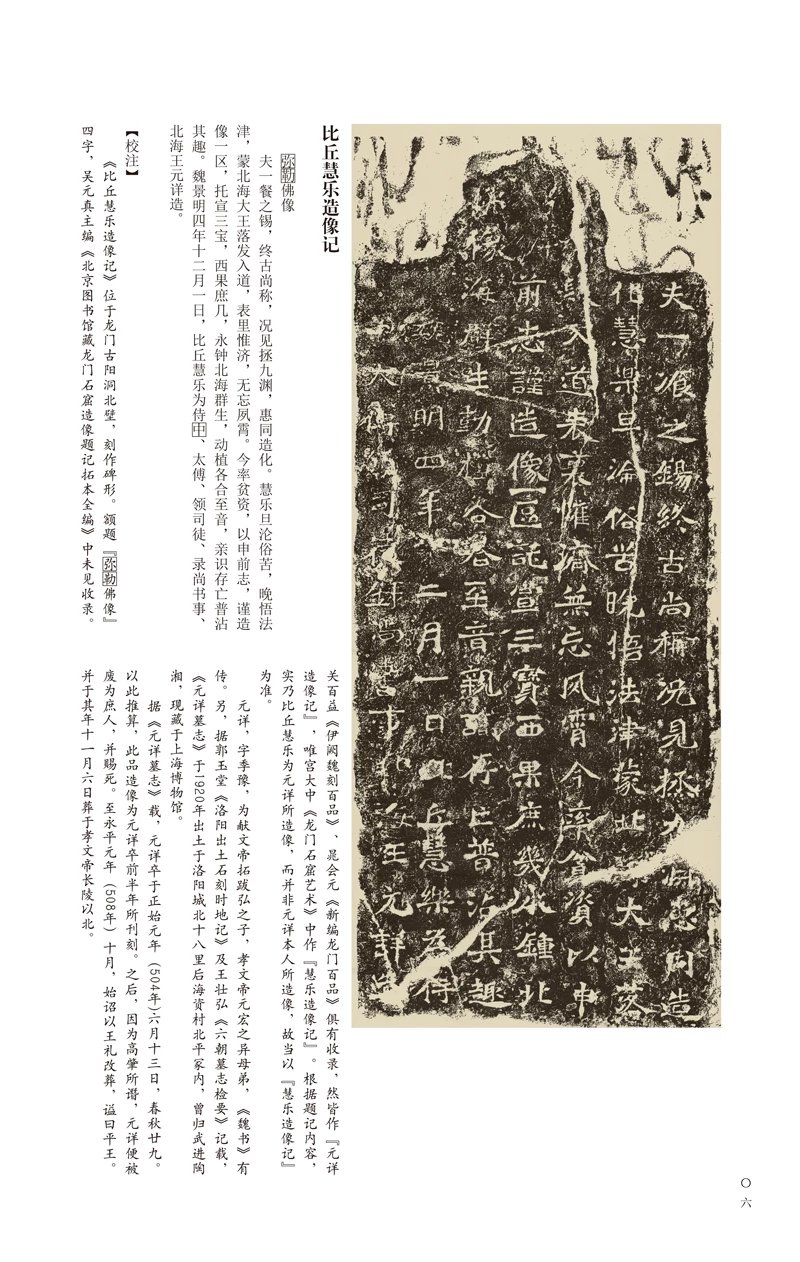 夫一飡之錫終古尚稱況見拯九淵惠同造
化慧樂旦淪俗苦晚悟法津蒙北海大王落
髮入道表裏惟濟無忘夙霄今率貧資以申
前志謹造像一區託宣三寶西果庶幾永鍾北
像海群生動植各合至音親識存亡普沾其趣
魏景明四年十二月一日比丘慧樂為侍
太傅司徒錄尚書事北海王元詳造
比丘慧乐造像记
弥勒佛像
夫一餐之锡，终古尚称，况见拯九渊，惠同造化。慧乐旦沦俗苦，晚悟法
津，蒙北海大王落发入道，表里惟济，无忘夙霄。今率贫资，以申前志，谨造
像一区，托宣三宝，西果庶几，永钟北海群生，动植各合至音，亲识存亡普沾
其趣。魏景明四年十二月一日，比丘慧乐为侍中、太傅、领司徒、录尚书事、
北海王元详造。
【校注】
《比丘慧乐造像记》位于龙门古阳洞北壁，刻作碑形。额题『弥勒佛像』
四字，吴元真主编《北京图书馆藏龙门石窟造像题记拓本全编》中未见收录。
关百益《伊阙魏刻百品》、晁会元《新编龙门百品》俱有收录，然皆作『元详
造像记』，唯宫大中《龙门石窟艺术》中作『慧乐造像记』。根据题记内容，
实乃比丘慧乐为元详所造像，而并非元详本人所造像，故当以『慧乐造像记』
为准。
元详，字季豫，为献文帝拓跋弘之子，孝文帝元宏之异母弟，《魏书》有
传。另，据郭玉堂《洛阳出土石刻时地记》及王壮弘《六朝墓志检要》记载，
《元详墓志》于1920年出土于洛阳城北十八里后海资村北平冢内，曾归武进陶
湘，现藏于上海博物馆。
据《元详墓志》载，元详卒于正始元年（504年）六月十三日，春秋廿九。
以此推算，此品造像为元详卒前半年所刊刻。之后，因为高肇所谮，元详便被
废为庶人，并赐死。至永平元年（508年）十月，始诏以王礼改葬，谥曰平王。
并于其年十一月六日葬于孝文帝长陵以北。
〇六